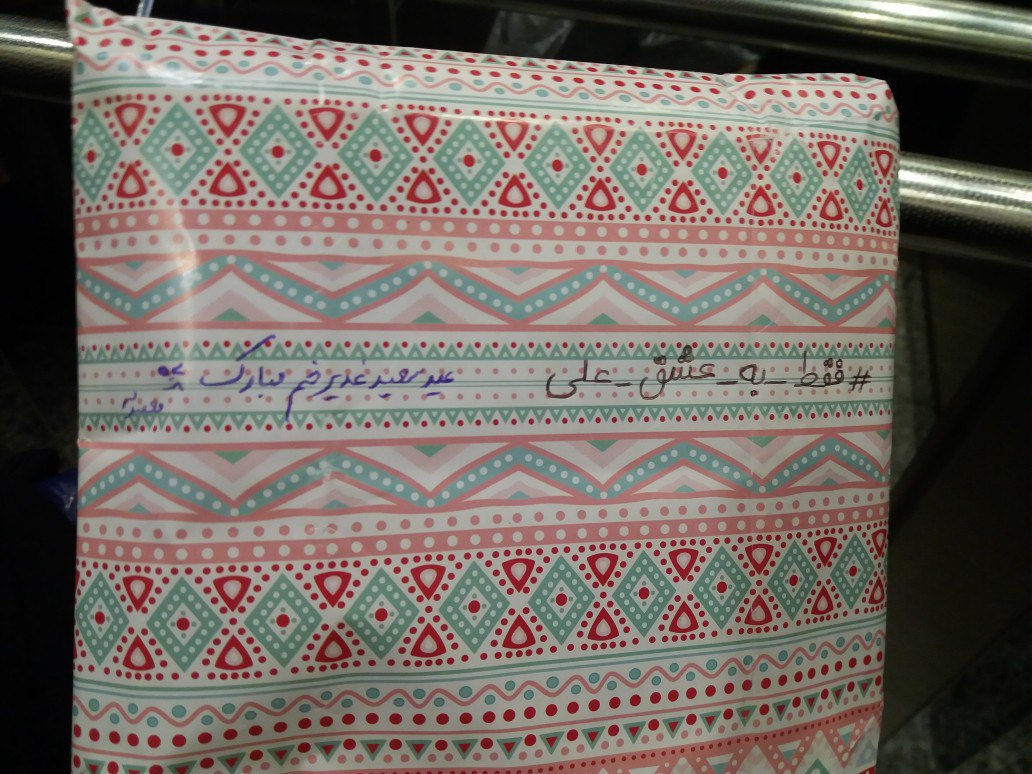 #فقط_به_عشق_علی
عید سعید غدیر خم مبارک